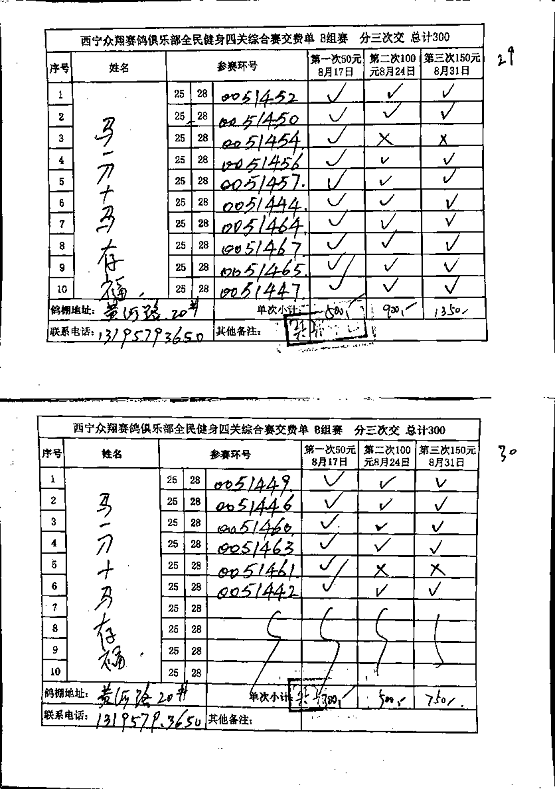 西宁众翔赛鸽俱乐部全民健身四关综合赛交费单 B组赛 分三次交 总计300
29
序号 姓名 参赛环号 第一次50元8月17日 第二次100元8月24日 第三次150元8月31日
1 25 28 0051452 ✓ ✓ ✓
2 25 28 0051450 ✓ ✓ ✓
3 25 28 0051454 ✓ × ×
4 25 28 0051456 ✓ ✓ ✓
5 25 28 0051457 ✓ ✓ ✓
6 25 28 0051444 ✓ ✓ ✓
7 25 28 0051464 ✓ ✓ ✓
8 25 28 0051467 ✓ ✓ ✓
9 25 28 0051465 ✓ ✓ ✓
10 25 28 0051447 ✓ ✓ ✓
马一刀十马存福
鸽棚地址: 黄河路20# 单次小计: 500,- 900,- 1350,-
联系电话: 13195793650 其他备注:
西宁众翔赛鸽俱乐部全民健身四关综合赛交费单 B组赛 分三次交 总计300
30
序号 姓名 参赛环号 第一次50元8月17日 第二次100元8月24日 第三次150元8月31日
1 25 28 0051449 ✓ ✓ ✓
2 25 28 0051446 ✓ ✓ ✓
3 25 28 0051460 ✓ ✓ ✓
4 25 28 0051463 ✓ ✓ ✓
5 25 28 0051461 ✓ × ×
6 25 28 0051442 ✓ ✓ ✓
7 25 28
8 25 28
9 25 28
10 25 28
马一刀十马存福
鸽棚地址: 黄河路20# 单次小计 300,- 500,- 750,-
联系电话: 13195793650 其他备注: